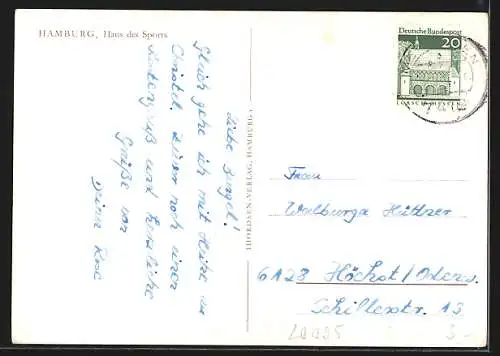 HAMBURG, Haus des Sports
Liebe Burgel!
Gleich gehe ich mit Heike zu
Christel. Zuvor noch einen
Kartengruß und herzliche
Grüße von
Deiner Rose
THORDSEN-VERLAG, HAMBURG 1
Deutsche Bundespost
20
LORSCH/HESSEN
Frau
Walburga Hüttner
6128 Höchst/Odenw.
Schillerstr. 15